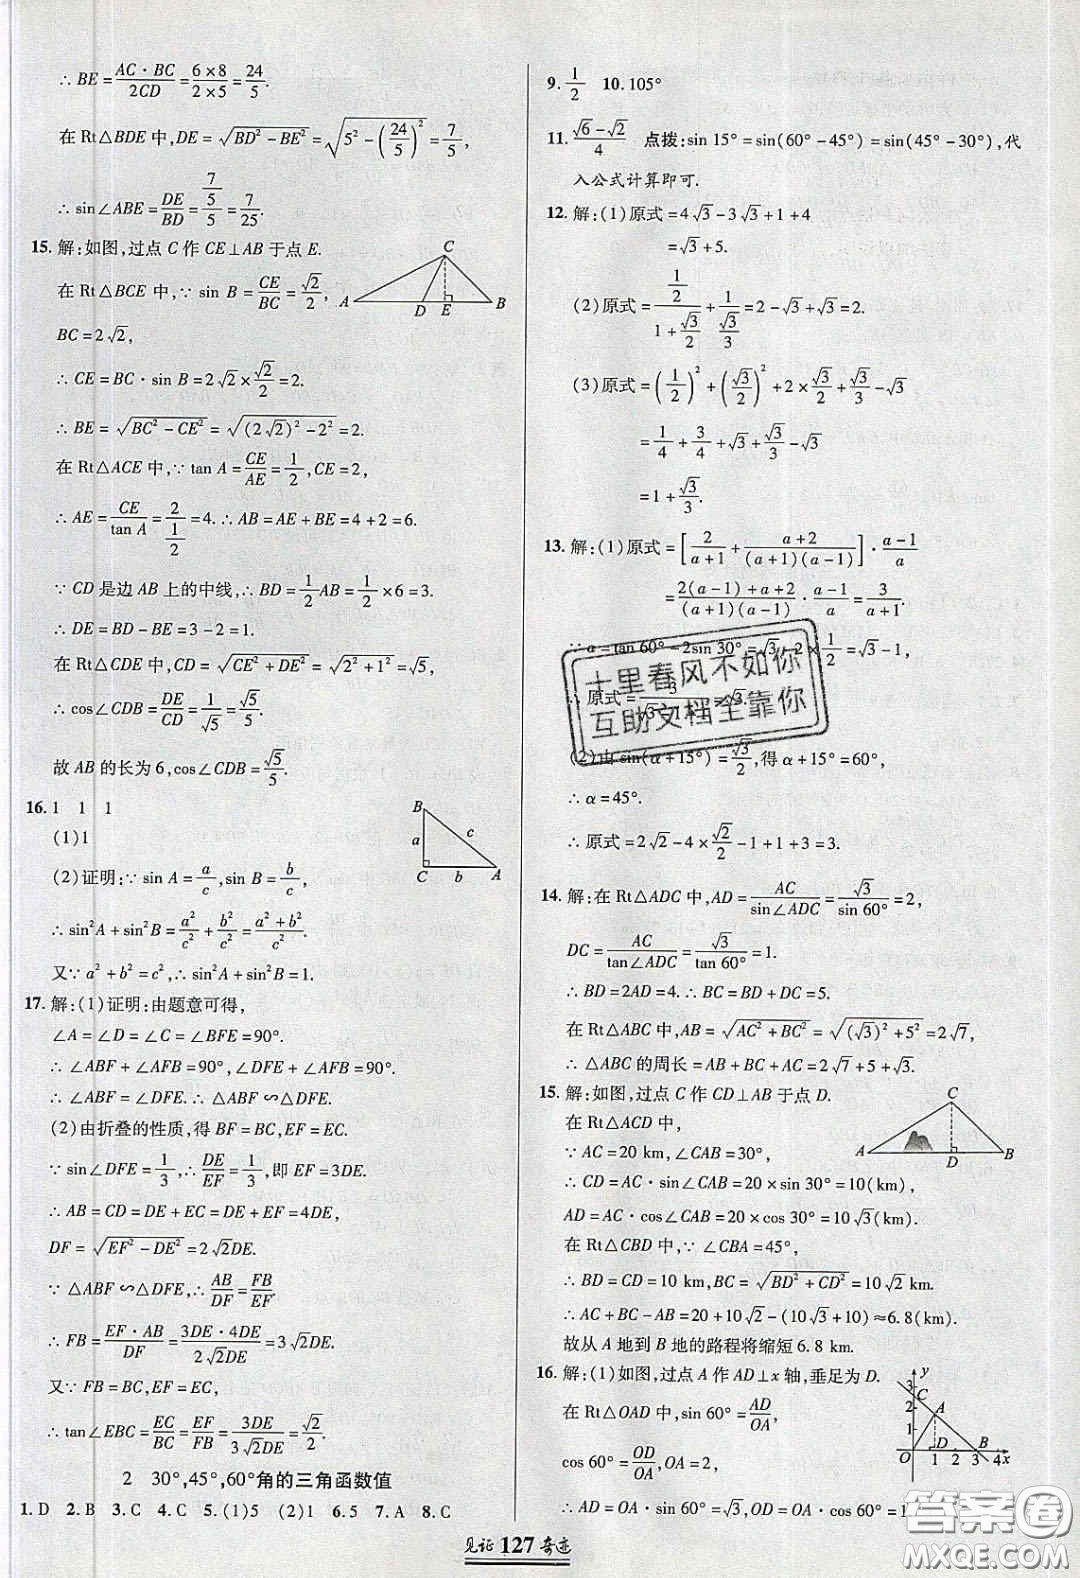 ∴ BE = AC·BC/2CD = 6×8/2×5 = 24/5.
在 Rt△BDE 中, DE = √(BD² − BE²) = √(5² − (24/5)²) = 7/5,
∴ sin∠ABE = DE/BD = (7/5)/5 = 7/25.
15. 解:如图,过点 C 作 CE⊥AB 于点 E.
在 Rt△BCE 中,∵ sin B = CE/BC = √2/2,
BC = 2√2,
∴ CE = BC·sin B = 2√2 × √2/2 = 2.
∴ BE = √(BC² − CE²) = √((2√2)² − 2²) = 2.
在 Rt△ACE 中,∵ tan A = CE/AE = 1/2, CE = 2,
∴ AE = CE/tan A = 2/(1/2) = 4. ∴ AB = AE + BE = 4 + 2 = 6.
∵ CD 是边 AB 上的中线,∴ BD = 1/2 AB = 1/2 × 6 = 3.
∴ DE = BD − BE = 3 − 2 = 1.
在 Rt△CDE 中, CD = √(CE² + DE²) = √(2² + 1²) = √5,
∴ cos∠CDB = DE/CD = 1/√5 = √5/5.
故 AB 的长为 6, cos∠CDB = √5/5.
A D E B C
16. 1 1 1
(1)1
(2)证明:∵ sin A = a/c, sin B = b/c,
∴ sin²A + sin²B = a²/c² + b²/c² = (a² + b²)/c².
又∵ a² + b² = c², ∴ sin²A + sin²B = 1.
B a c C b A
17. 解:(1)证明:由题意可得,
∠A = ∠D = ∠C = ∠BFE = 90°.
∴ ∠ABF + ∠AFB = 90°, ∠DFE + ∠AFB = 90°.
∴ ∠ABF = ∠DFE. ∴ △ABF ∽ △DFE.
(2)由折叠的性质,得 BF = BC, EF = EC.
∵ sin∠DFE = 1/3, ∴ DE/EF = 1/3, 即 EF = 3DE.
∴ AB = CD = DE + EC = DE + EF = 4DE,
DF = √(EF² − DE²) = 2√2DE.
∵ △ABF ∽ △DFE, ∴ AB/DF = FB/EF.
∴ FB = EF·AB/DF = 3DE·4DE/2√2DE = 3√2DE.
又∵ FB = BC, EF = EC,
∴ tan∠EBC = EC/BC = EF/FB = 3DE/3√2DE = √2/2.
2 30°,45°,60°角的三角函数值
1. D 2. B 3. C 4. C 5. (1)5 (2)1 6. 5 7. A 8. C
9. 1/2 10. 105°
11. (√6−√2)/4 点拨: sin 15° = sin(60° − 45°) = sin(45° − 30°), 代
入公式计算即可.
12. 解:(1)原式 = 4√3 − 3√3 + 1 + 4
= √3 + 5.
(2)原式 = (1/2)/(1 + √3/2) + 1/(√3/3) = 2 − √3 + √3 = 2.
(3)原式 = (1/2)² + (√3/2)² + 2 × √3/2 + √3/3 − √3
= 1/4 + 3/4 + √3 + √3/3 − √3
= 1 + √3/3.
13. 解:(1)原式 = [2/(a+1) + (a+2)/((a+1)(a−1))] · (a−1)/a
= (2(a−1)+a+2)/((a+1)(a−1)) · (a−1)/a = 3/(a+1).
∵ a = tan 60° − 2sin 30° = √3 − 2 × 1/2 = √3 − 1,
∴ 原式 = 3/(√3−1+1) = √3.
(2)由 sin(α + 15°) = √3/2, 得 α + 15° = 60°,
∴ α = 45°.
∴ 原式 = 2√2 − 4 × √2/2 − 1 + 1 + 3 = 3.
14. 解:在 Rt△ADC 中, AD = AC/sin∠ADC = √3/sin 60° = 2,
DC = AC/tan∠ADC = √3/tan 60° = 1.
∴ BD = 2AD = 4. ∴ BC = BD + DC = 5.
在 Rt△ABC 中, AB = √(AC² + BC²) = √((√3)² + 5²) = 2√7,
∴ △ABC 的周长 = AB + BC + AC = 2√7 + 5 + √3.
15. 解:如图,过点 C 作 CD⊥AB 于点 D.
在 Rt△ACD 中,
∵ AC = 20 km, ∠CAB = 30°,
∴ CD = AC·sin∠CAB = 20 × sin 30° = 10(km),
AD = AC·cos∠CAB = 20 × cos 30° = 10√3(km).
在 Rt△CBD 中,∵ ∠CBA = 45°,
∴ BD = CD = 10 km, BC = √(BD² + CD²) = 10√2 km.
∴ AC + BC − AB = 20 + 10√2 − (10√3 + 10) ≈ 6.8(km).
故从 A 地到 B 地的路程将缩短 6.8 km.
A D B C
16. 解:(1)如图,过点 A 作 AD⊥x 轴,垂足为 D.
在 Rt△OAD 中, sin 60° = AD/OA,
cos 60° = OD/OA, OA = 2,
∴ AD = OA·sin 60° = √3, OD = OA·cos 60° = 1
y 3 C 2 A 1 O 1 D 2 B 3 4 x
见证 127 奇迹
十里春风不如你
互助文档全靠你
答案圈
MXQE.COM